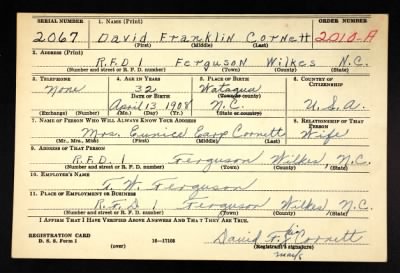 SERIAL NUMBER 1. NAME (Print) ORDER NUMBER
2067 David Franklin Cornett 2010-A
(First) (Middle) (Last)
2. ADDRESS (Print)
R.F.D. 1 Ferguson Wilkes N.C.
(Number and street or R. F. D. number) (Town) (County) (State)
3. TELEPHONE 4. AGE IN YEARS 5. PLACE OF BIRTH 6. COUNTRY OF CITIZENSHIP
None 32 Watauga
DATE OF BIRTH (Town or county)
April 13 1908 N.C. U.S.A.
(Exchange) (Number) (Mo.) (Day) (Yr.) (State or country)
7. NAME OF PERSON WHO WILL ALWAYS KNOW YOUR ADDRESS 8. RELATIONSHIP OF THAT PERSON
Mrs. Eunice Earp Cornett Wife
(Mr., Mrs., Miss) (First) (Middle) (Last)
9. ADDRESS OF THAT PERSON
R.F.D. 1 Ferguson Wilkes, N.C.
(Number and street or R. F. D. number) (Town) (County) (State)
10. EMPLOYER'S NAME
T. W. Ferguson
11. PLACE OF EMPLOYMENT OR BUSINESS
R.F.D 1 Ferguson Wilkes N.C.
(Number and street or R. F. D. number) (Town) (County) (State)
I AFFIRM THAT I HAVE VERIFIED ABOVE ANSWERS AND THAT THEY ARE TRUE.
REGISTRATION CARD his
D. S. S. Form 1 (over) 16—17105 David F. X Cornett
(Registrant's signature)
mark